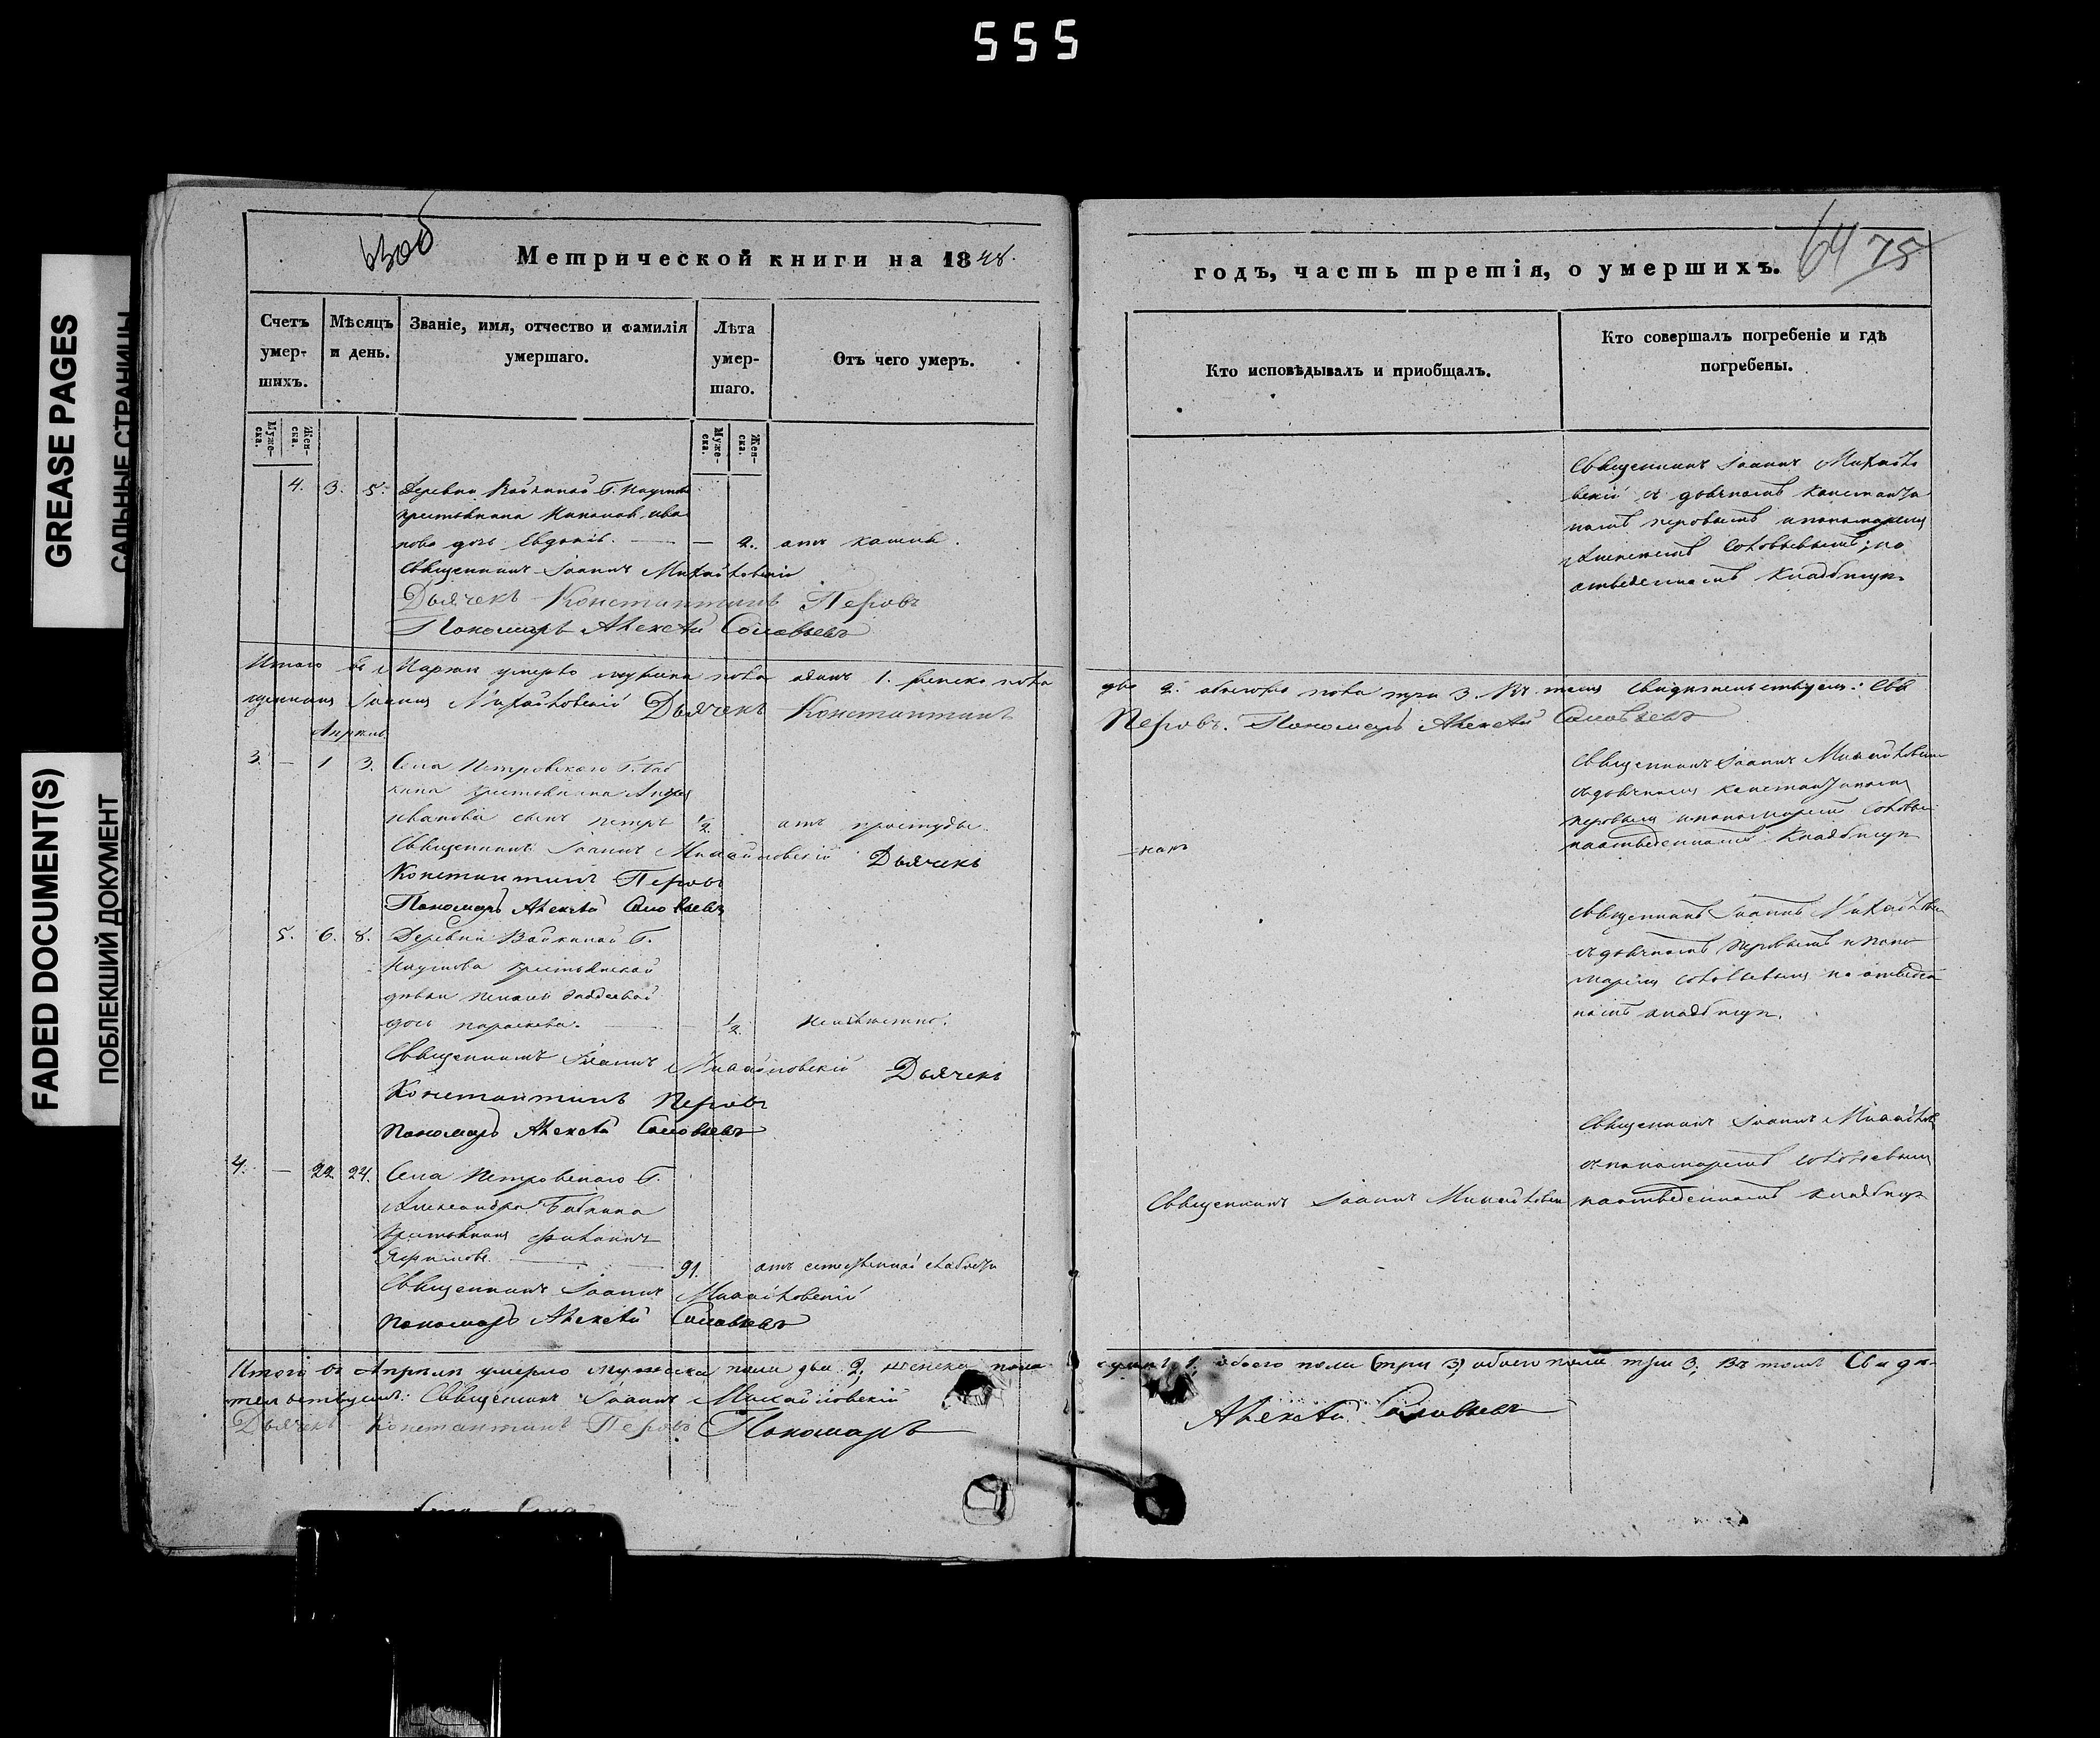 555
GREASE PAGES
САЛЬНЫЕ СТРАНИЦЫ
FADED DOCUMENT(S)
ПОБЛЕКШИЙ ДОКУМЕНТ
Метрической книги на 1848.
Счетъ умер-шихъ.
Мѣсяцъ и день.
Званіе, имя, отчество и фамилія умершаго.
Лѣта умер-шаго.
Отъ чего умеръ.
Муже-ска.
Жен-ска.
Муже-ска.
Жен-ска.
4. 3. 5. Деревни
крестьянина ива
нова дочь Евдокія. — — 2. отъ кашля.
Священникъ Іоаннъ Михайловскій
Дьячекъ Константинъ Перовъ
Пономарь Алексѣй Соловьевъ
Итого въ Мартѣ умерло мужска пола одинъ 1. женска пола
щенникъ Іоаннъ Михайловскій Дьячекъ Константинъ
Апрѣль
3. — 1 3. Села Петровскаго Г. Баб
кина крестьянина Андрея
иванова сынъ петръ 1/2. отъ простуды.
Священникъ Іоаннъ Михайловскій Дьячекъ
Константинъ Перовъ
Пономарь Алексѣй Соловьевъ
5. 6. 8. Деревни Г.
Наумова крестьянской
дѣвки
дочь параскева. — — 1/2. неизвѣстно.
Священникъ Іоаннъ Михайловскій Дьячекъ
Константинъ Перовъ
пономарь Алексѣй Соловьевъ
4. — 22 24. Села Петровскаго Г.
Александра Бабкина
крестьянинъ
— — 91. отъ естественной слабости
Священникъ Іоаннъ Михайловскій
пономарь Алексѣй Соловьевъ
Итого въ Апрѣлѣ умерло мужска пола два 2, женска пола
тельствуемъ: Священникъ Іоаннъ Михайловскій
Дьячекъ Константинъ Перовъ Пономарь
годъ, часть третія, о умершихъ.
64 75
Кто исповѣдывалъ и пріобщалъ.
Кто совершалъ погребеніе и гдѣ погребены.
Священникъ Іоаннъ Михайло
вскій съ дьячкомъ константи
номъ перовымъ и пономаремъ
алексѣемъ соловьевымъ; на
отведенномъ кладбищѣ
два 2. обоего пола три 3. Въ томъ свидѣтельствуемъ: Свя
Перовъ. Пономарь Алексѣй Соловьевъ
Священникъ Іоаннъ Михайловскій
съ дьячкомъ константиномъ
перовымъ и пономаремъ соловье
на отведенномъ кладбищѣ
Священникъ Іоаннъ Михайлов
съ дьячкомъ перовымъ и поно
маремъ соловьевымъ на отведен
номъ кладбищѣ.
Священникъ Іоаннъ Михайлов
съ пономаремъ соловьевымъ
Священникъ Іоаннъ Михайловскій на отведенномъ кладбищѣ
одинъ 1. обоего пола (три 3) обоего пола три 3; Въ томъ Свидѣ-
Алексѣй Соловьевъ